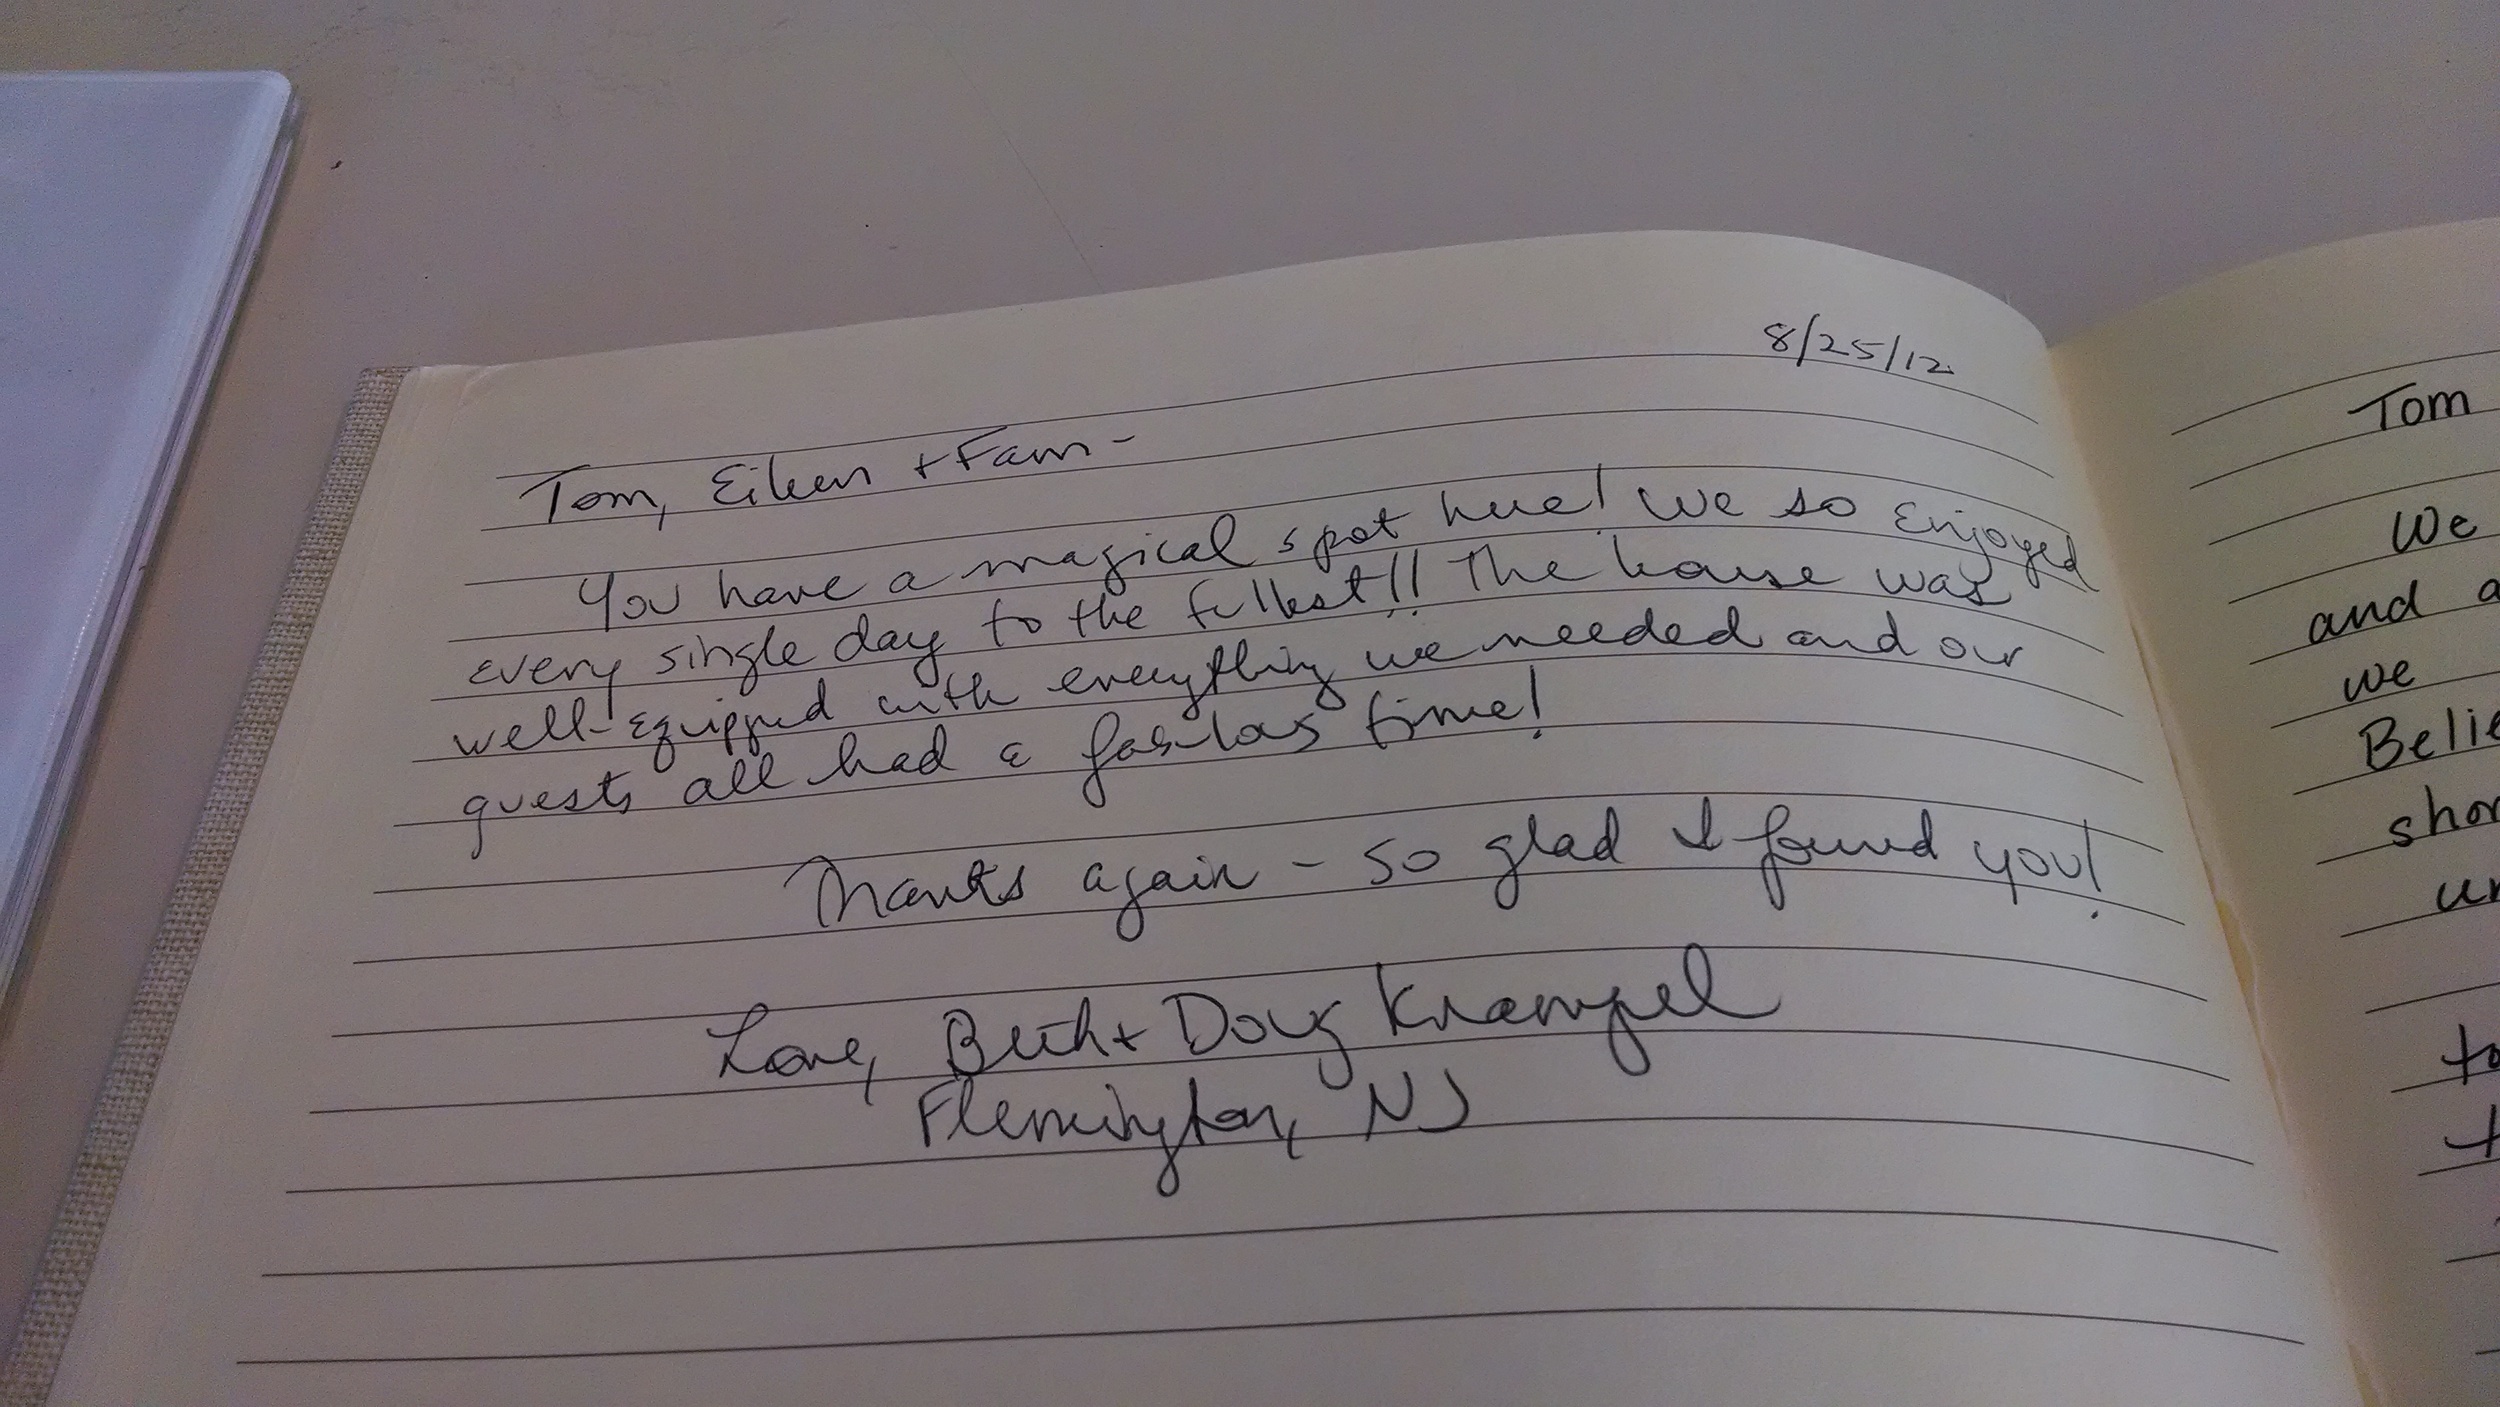 8/25/12
Tom, Eileen + Fam -
You have a magical spot here! We so enjoyed
every single day to the fullest!! The house was
well-equipped with everything we needed and our
guests all had a fabulous time!
Thanks again - so glad I found you!
Love, Beth + Doug Krampel
Flemington, NJ
Tom
We
and a
we
Belie
shor
un
to
t